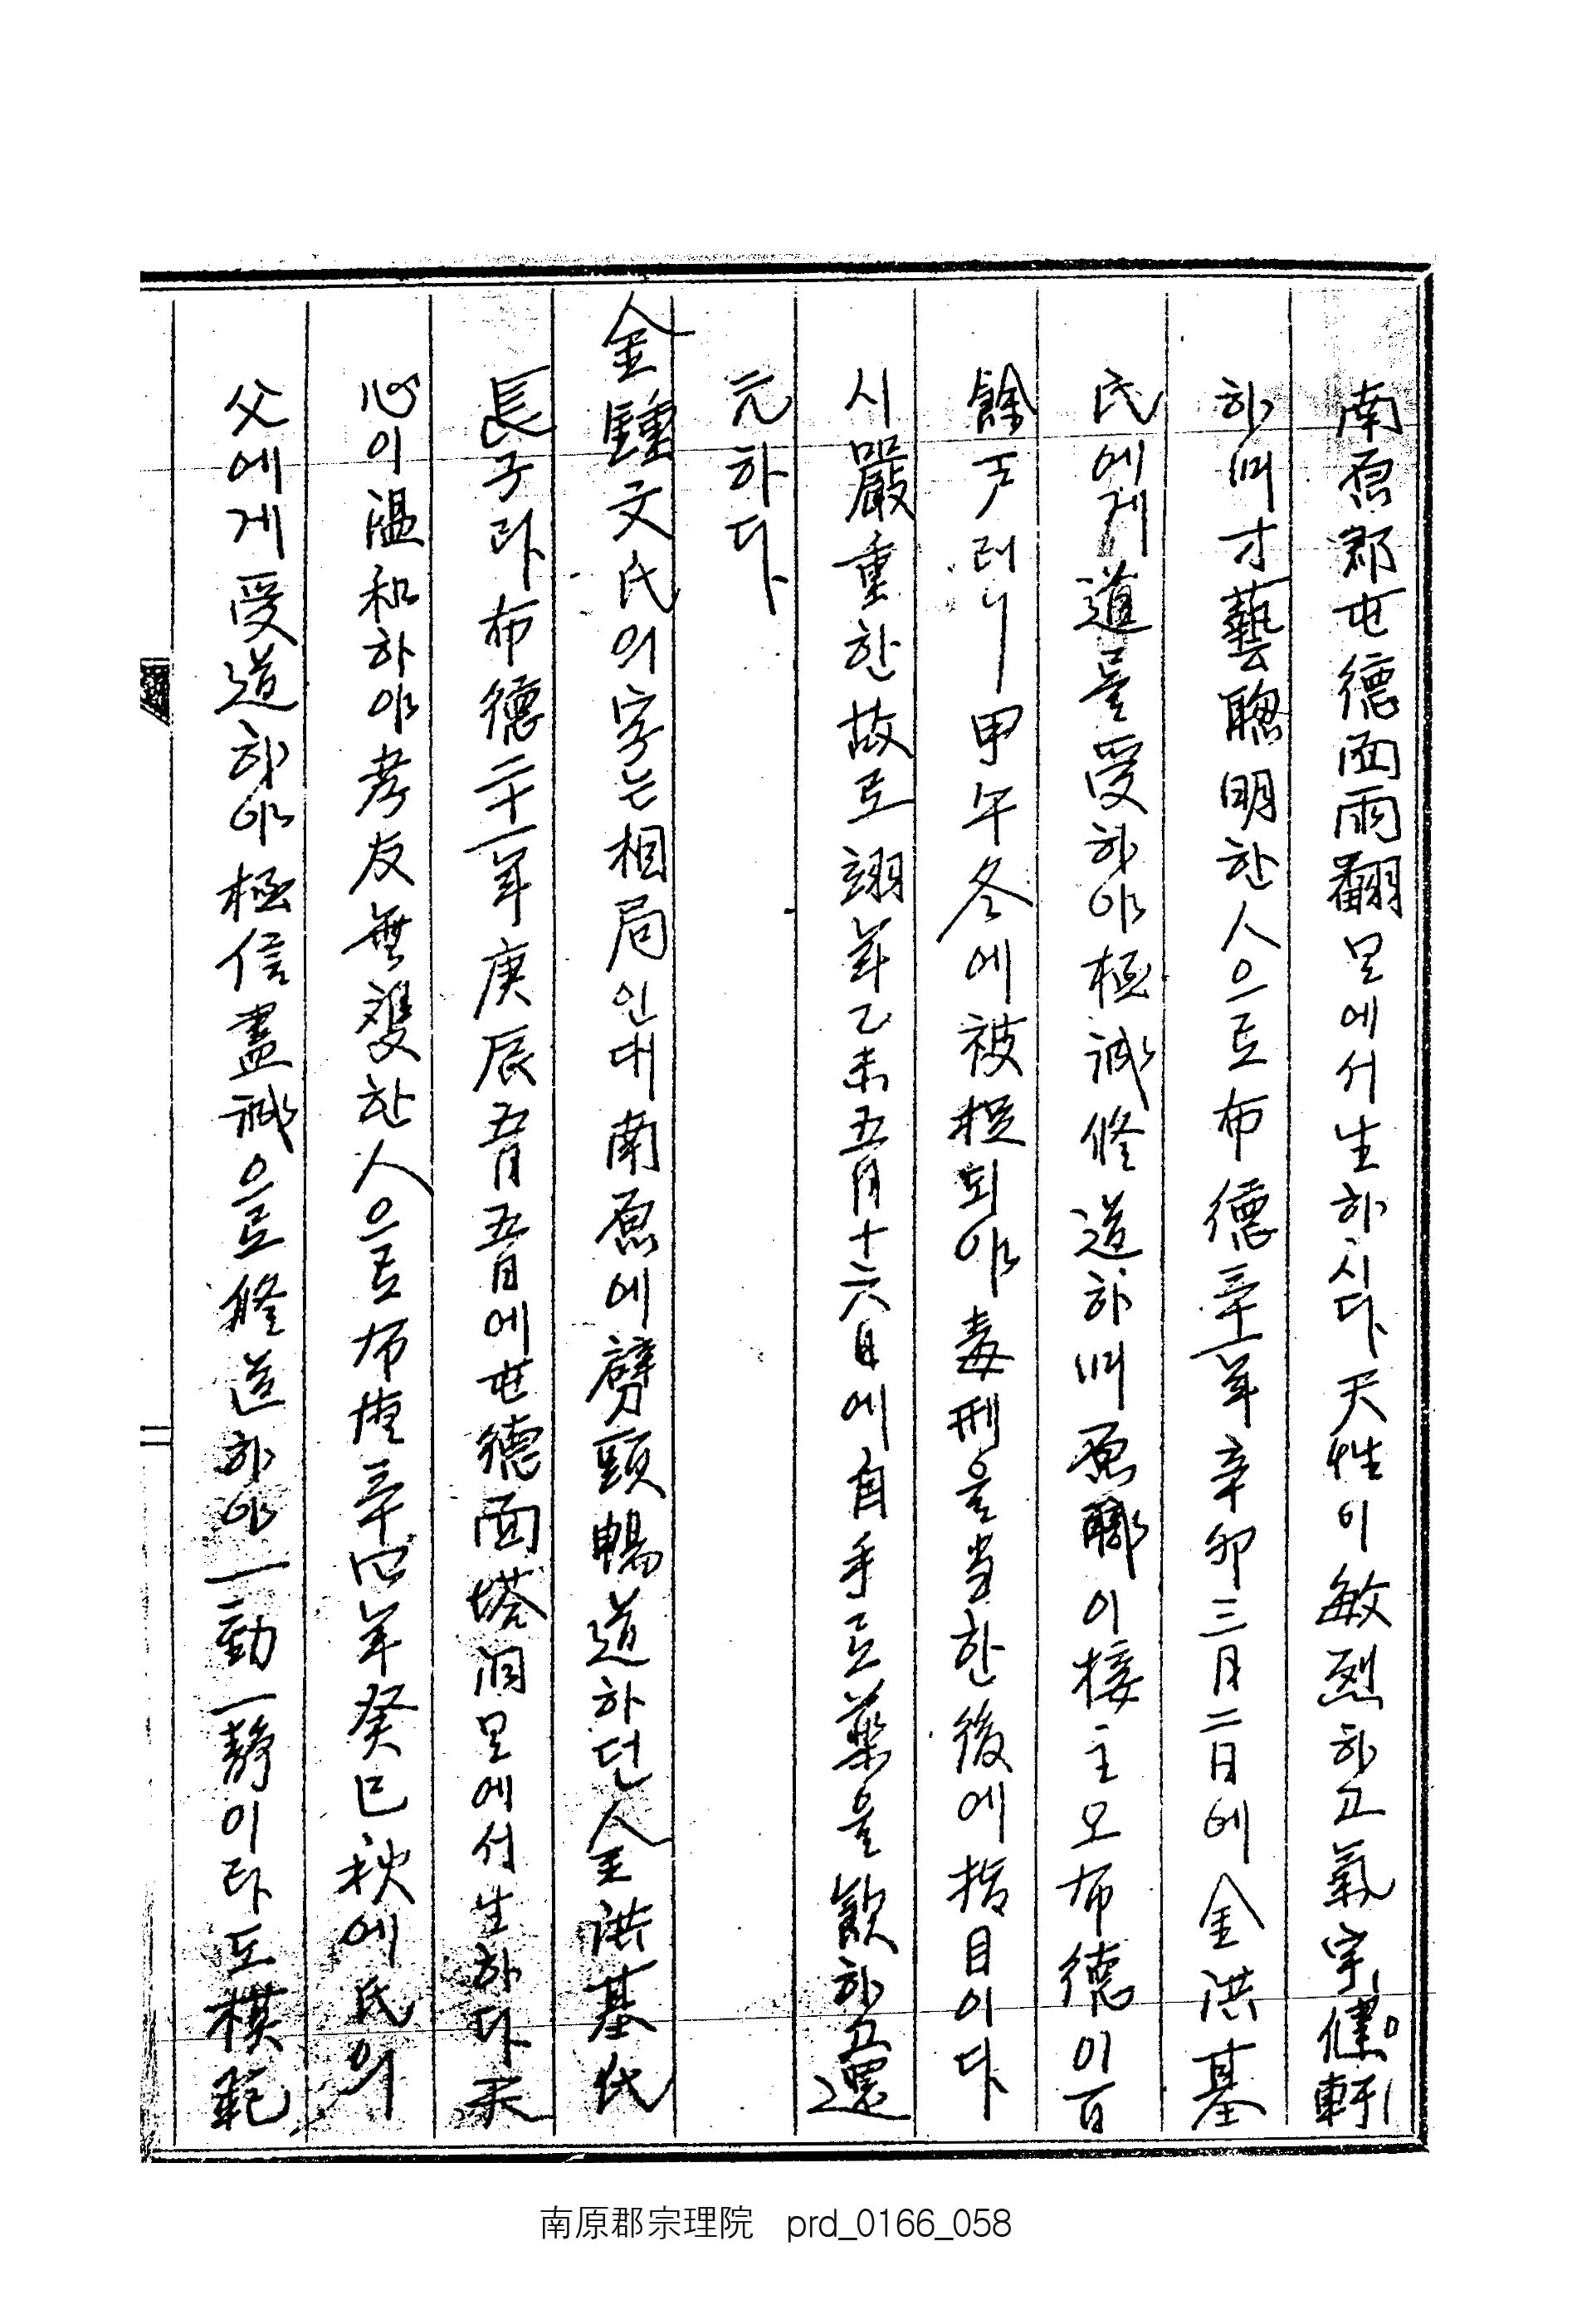 南原郡屯德面雨翻里에서生하시다天性이敏烈하고氣宇健軒
하며才藝聰明한人으로布德三十二年辛卯三月二日에金洪基
氏에게道를受하야極誠修道하며原職이接主오布德이百
餘戶러니甲午冬에被捉되야毒刑을當한後에指目이다
시嚴重한故로翌年乙未五月十六日에自手로藥을飮하고還
元하다
金鍾文氏의字는相局인대南原에劈頭暢道하던金洪基氏
長子라布德二十一年庚辰五月五日에屯德面塔洞里에서生하다天
心이溫和하야孝友無雙한人으로布德三十四年癸巳秋에氏의
父에게受道하야極信盡誠으로修道하야一動一靜이라도模範
南原郡宗理院 prd_0166_058